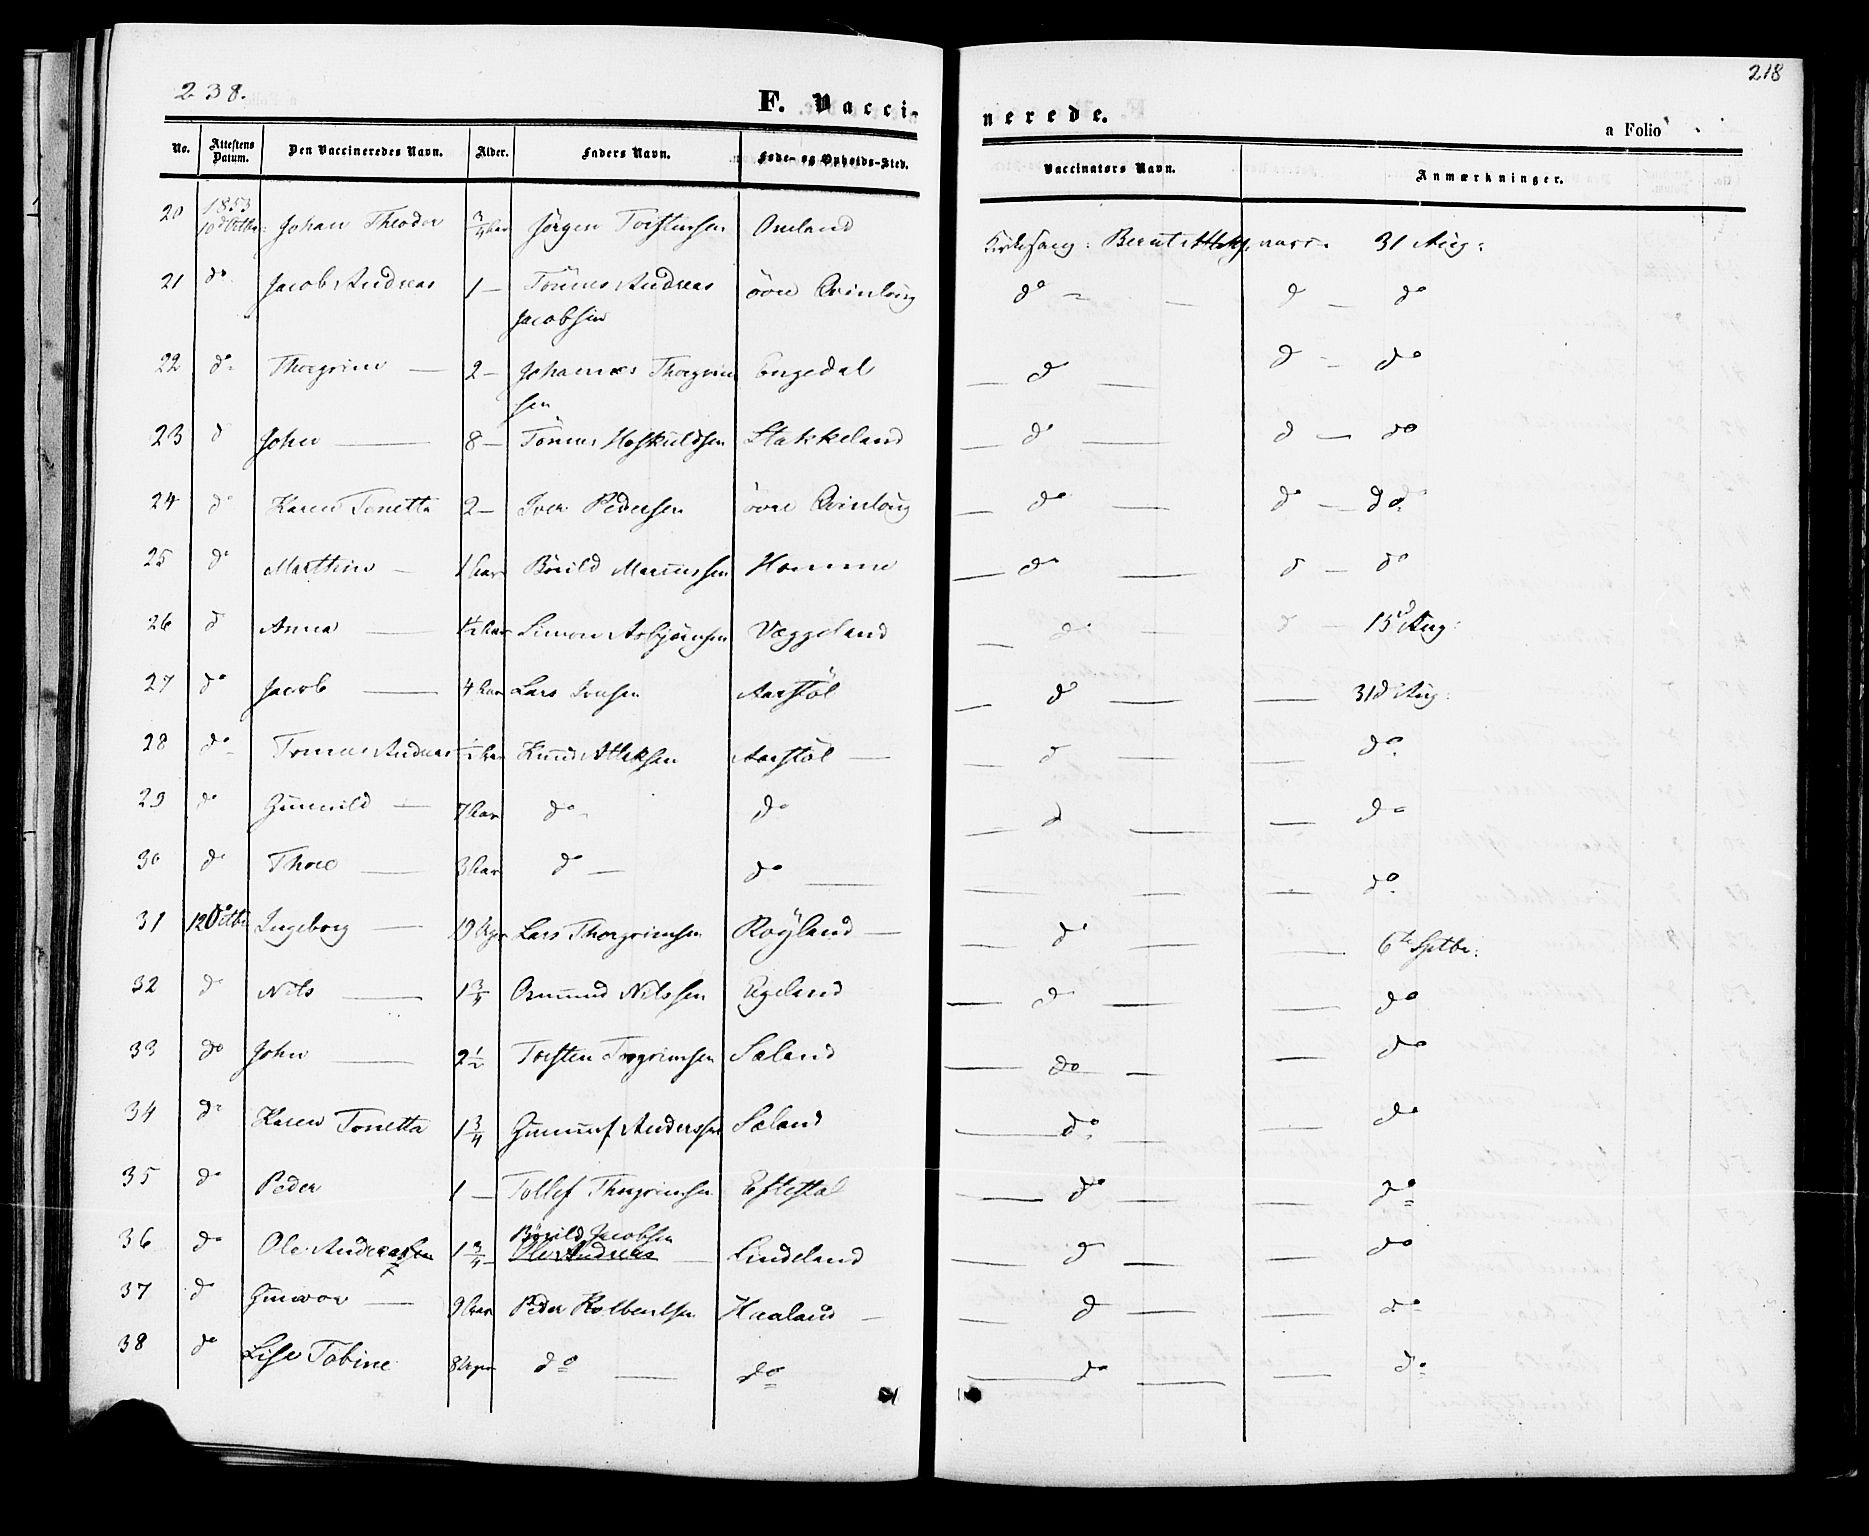 238.
218
F. Vacci-
nerede.
a Folio
No. Attestens Datum. Den Vaccineredes Navn. Alder. Faders Navn. Føde- og Opholds-Sted. Vaccinatørs Navn. Anmærkninger.
1853
20 10d Octbr: Johan Theodor 3/4 aar Jørgen Torstensen Omland Kirkesang: Bernt 31 Aug:
21 do Jacob Andreas 1 — Tönnes Andreas Jacobsen övre Qvinlaug do — — d — do
22 do Thorgrim — 2 — Johannes Thorgrimsen Engedal — d — d — do
23 d John — 8 — Tönnes Hoskuldsen Stakkeland — do — d — do
24 do Karen Tonetta 2 — Iver Pedersen övre Qvinlaug — do — do — do
25 do Marthin — 1 aar Börild Marcussen Homme — do — d — do
26 d Anna — 1/2 aar Simon Asbjörnsen Væggeland — do — d — 15d Aug:
27 do Jacob — 4 aar Lars Iversen Aarstöl — d — — 31d Aug:
28 do Tönnes Andreas 1/2 aar Knud Atleksen Aarstöl — — d — — do
29 do Gunvild — 7 aar do do — d — — do
30 do Thore — 3 aar do — do — — — — do
31 12 Octbr Ingeborg — 19 Uger Lars Thorgrimsen Röyland — — do — — 6te Sptbr:
32 do Nils — 1 3/4 Osmund Nilssen Egeland — do — — do
33 do John — 2 1/2 Torsten Trogrimsen Sæland — do — — do
34 do Karen Tonetta 1 3/4 Gunnuf Anderssen Sæland — do — — do
35 do Peder 1 — Tollef Thorgrimsen Eftestöl — do — — do
Börild Jacobsen
36 do Ole Andreassen 1 3/4 Ole Andreas — Lindeland — d — — do
37 do Gunvor — 9 aar Peder Kolbentsen Haaland — — d — — do
38 do Lise Tobine 8 Uger do — do — do — — do